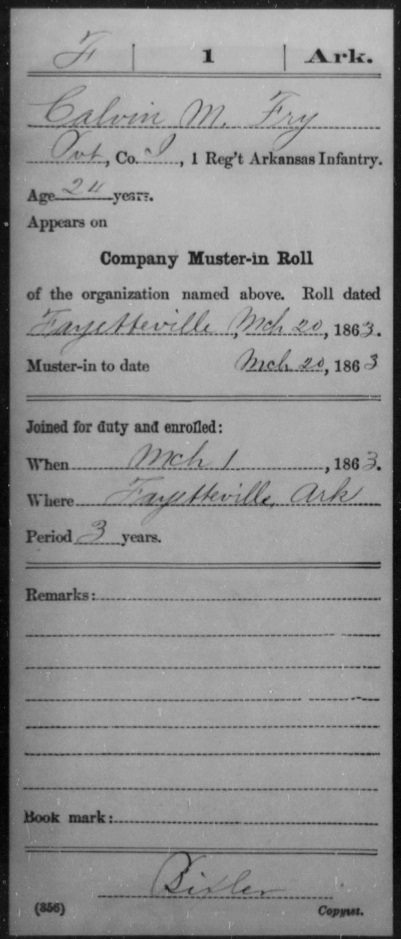 F | 1 | Ark.
Calvin M. Fry
Pvt, Co. I, 1 Reg't Arkansas Infantry.
Age 24 years.
Appears on
Company Muster-in Roll
of the organization named above. Roll dated
Fayetteville, Mch 20, 1863.
Muster-in to date Mch 20, 1863
Joined for duty and enrolled:
When Mch 1, 1863.
Where Fayetteville, Ark
Period 3 years.
Remarks:
Book mark:
Bixler
(356) Copyist.